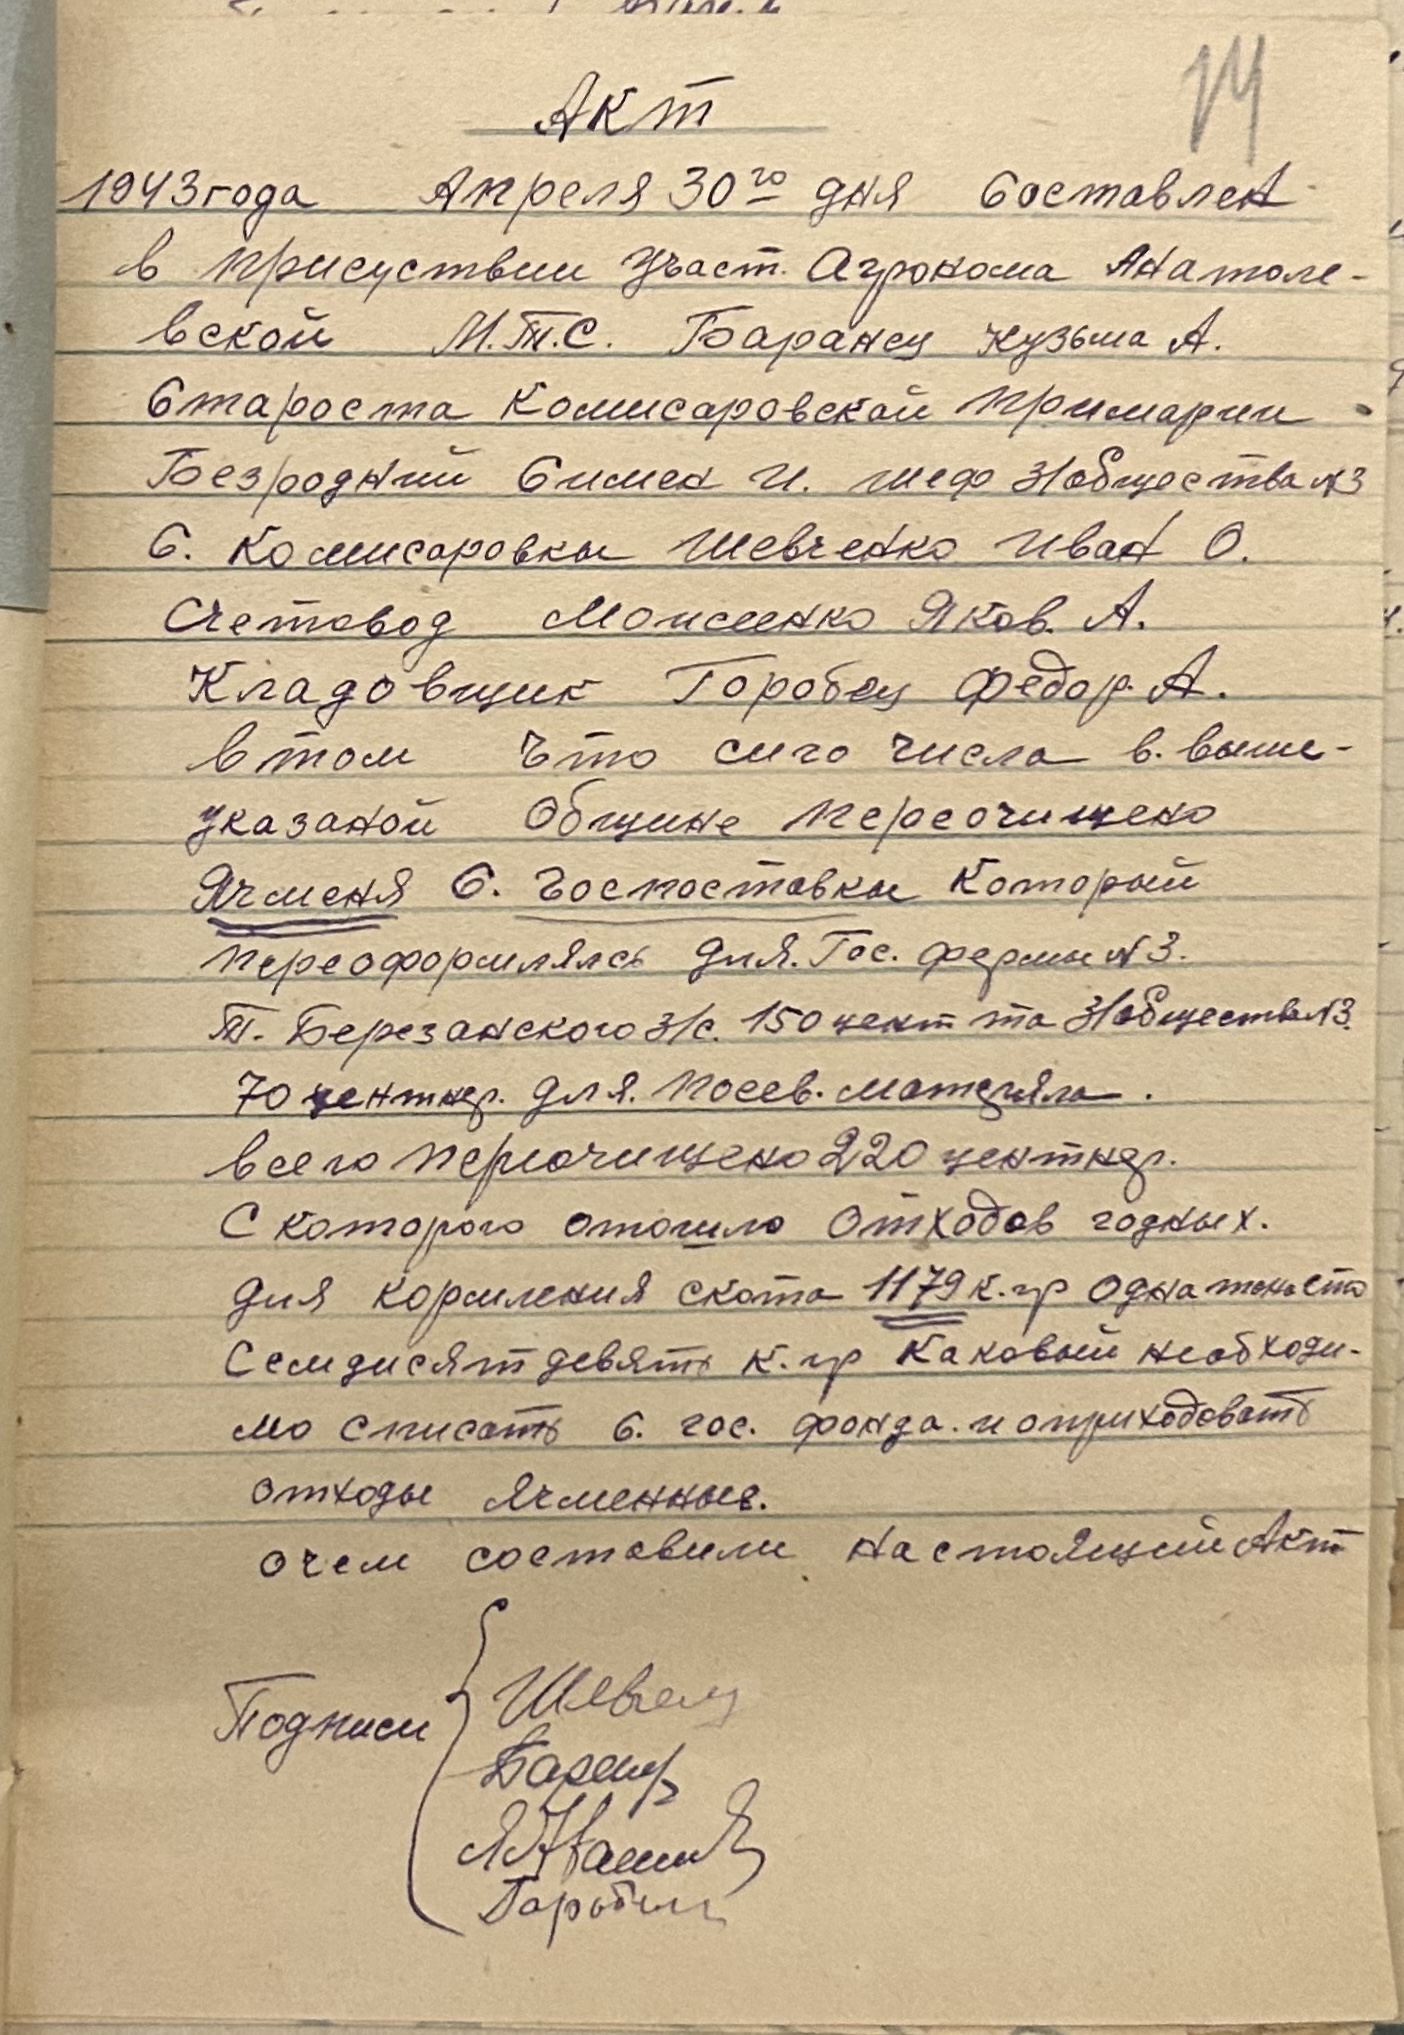 14
Акт
1943 года Апреля 30го дня Составлен
в присуствии Участ. Агронома Анатоле-
вской М.Т.С. Баранец Кузьма А.
Староста Комисаровской примарии
Безродний Симен И. шеф З/общества №3
С. Комисаровкы Шевченко Иван О.
Счетовод Моисиенко Яков. А.
Кладовщик Горобец Федор. А.
в том что сиго числа в. выше-
указаной Общине переочищено
Ячменя С. Госпоставкы Который
переоформлялсь для. Гос. фермы №3.
Т. Березанского З/с. 150 цент та З/общества №3.
70 центнер. для. посев. материяла.
всего переочищено 220 центнер.
С которого отошло отходов годных.
для кормления скота 1179 к.гр Однатонасто
Семдисят девять к.гр Каковый необходи-
мо списать с. гос. фонда. и оприходовать
отходы ячменные.
очем составили настоящий Акт
Подписи
Горобец